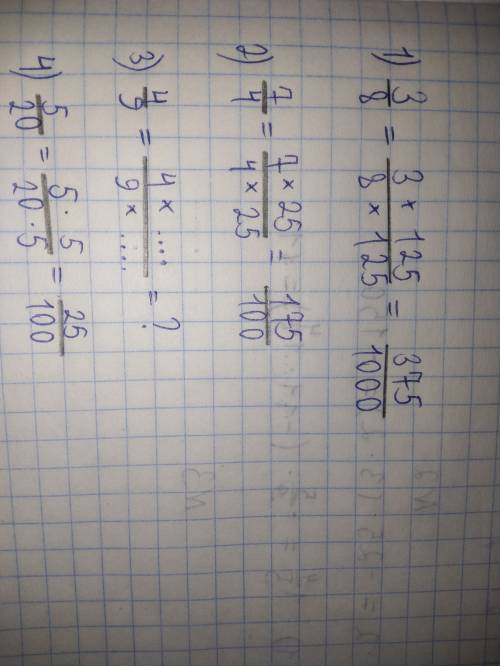 1) 3/8 = 3 × 125 / 8 × 125 = 375/1000
2) 7/4 = 7 × 25 / 4 × 25 = 175/100
3) 4/9 = 4 × .... / 9 × .... = ?
4) 5/20 = 5 · 5 / 20 · 5 = 25/100